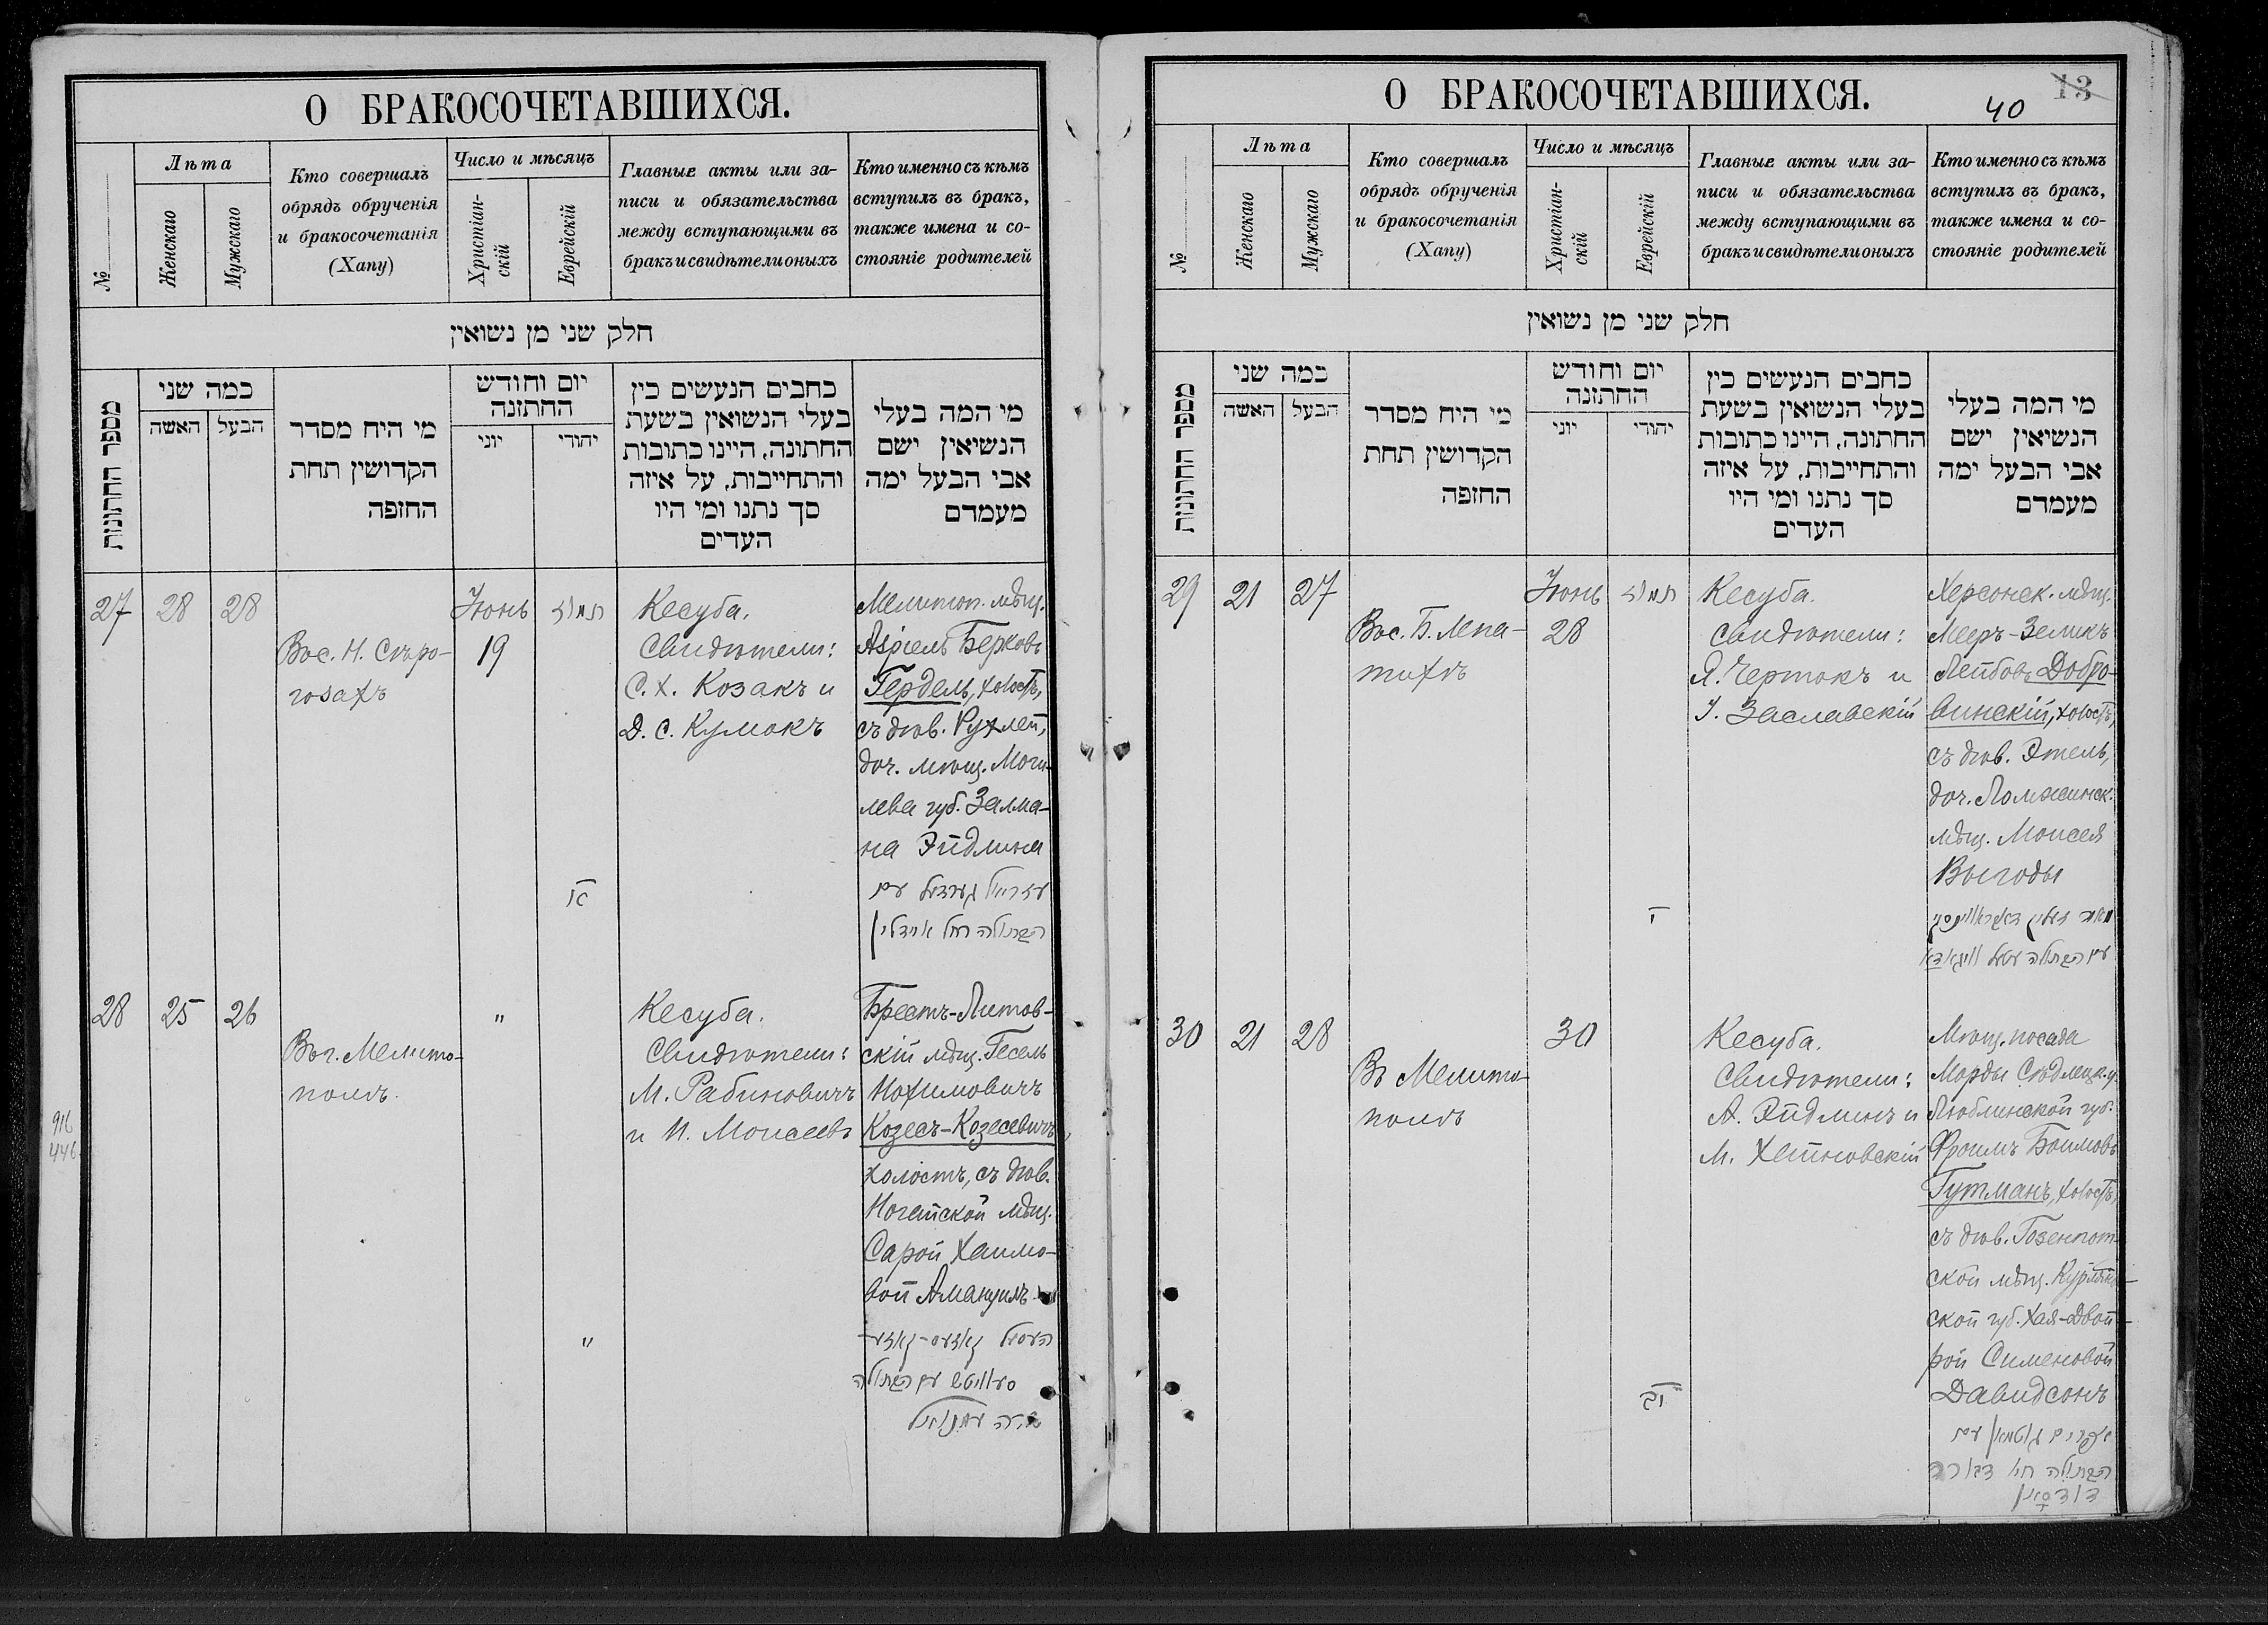 О БРАКОСОЧЕТАВШИХСЯ.
№
Лѣта
Женскаго
Мужскаго
Кто совершалъ
обрядъ обрученія
и бракосочетанія
(Хапу)
Число и мѣсяцъ
Христіан-
скій
Еврейскій
Главные акты или за-
писи и обязательства
между вступающими въ
бракъ и свидѣтели оныхъ
Кто именно съ кѣмъ
вступилъ въ бракъ,
также имена и со-
стояніе родителей
חלק שני מן נשואין
מספר החתונות
כמה שני
האשה
הבעל
מי היח מסדר
הקדושין תחת
החופה
יום וחודש
החתונה
יוני
יהודי
כתבים הנעשים בין
בעלי הנשואין בשעת
החתונה, היינו כתובות
והתחייבות, על איזה
סך נתנו ומי היו
העדים
מי המה בעלי
הנשיאין ישם
אבי הבעל ימה
מעמדם
27
28
28
Вѣ с. Н. Сѣро-
гозахъ
Іюнь
19
תמוז
כא
Кесуба.
Свидѣтели:
С. Х. Козакъ и
Д. С. Кумокъ
Мелитоп. мѣщ.
Азріель Берковъ
Гердель, холостъ,
съ дѣв. Рухлей,
доч. мѣщ. Моги-
лева губ. Залма-
на Эйдлина
עזריאל גערדעל עם
הבתולה רחל איידלין
28
25
26
Въ г. Мелито-
полѣ.
"
"
Кесуба.
Свидѣтели:
М. Рабиновичъ
и И. Моисеевъ
Брестъ-Литов-
скій мѣщ. Гесель
Нохимовичъ
Козесъ-Козесевичъ,
холостъ, съ дѣв.
Ногайской мѣщ.
Сарой Хаимо-
вой Амануилъ
הבתולה
שרה
916
446
О БРАКОСОЧЕТАВШИХСЯ.
40
13
№
Лѣта
Женскаго
Мужскаго
Кто совершалъ
обрядъ обрученія
и бракосочетанія
(Хапу)
Число и мѣсяцъ
Христіан-
скій
Еврейскій
Главные акты или за-
писи и обязательства
между вступающими въ
бракъ и свидѣтели оныхъ
Кто именно съ кѣмъ
вступилъ въ бракъ,
также имена и со-
стояніе родителей
חלק שני מן נשואין
מספר החתונות
כמה שני
האשה
הבעל
מי היח מסדר
הקדושין תחת
החופה
יום וחודש
החתונה
יוני
יהודי
כתבים הנעשים בין
בעלי הנשואין בשעת
החתונה, היינו כתובות
והתחייבות, על איזה
סך נתנו ומי היו
העדים
מי המה בעלי
הנשיאין ישם
אבי הבעל ימה
מעמדם
29
21
27
Въ с. Б. Лепа-
тихѣ
Іюнь
28
תמוז
י
Кесуба.
Свидѣтели:
Я. Чертокъ и
І. Заславскій
Херсонск. мѣщ.
Мееръ-Зеликъ
Лейбовъ Добро-
винскій, холостъ,
съ дѣв. Этель,
доч. Ломжинск.
мѣщ. Моисея
Выгоды
עם הבתולה עטעל וויגאדא
30
21
28
Въ Мелито-
полѣ
30
יב
Кесуба.
Свидѣтели:
А. Эйдлинъ и
М. Хейновскій
Мѣщ. посада
Морды Сѣдлецк. у.
Люблинской губ.
Фроимъ Боимовъ
Гутманъ, холостъ,
съ дѣв. Гозенпот-
ской мѣщ. Курлянд-
ской губ. Хая-Двой-
рой Сименовой
Давидсонъ
אפרים גוטמאן עם
הבתולה חיה דבורה